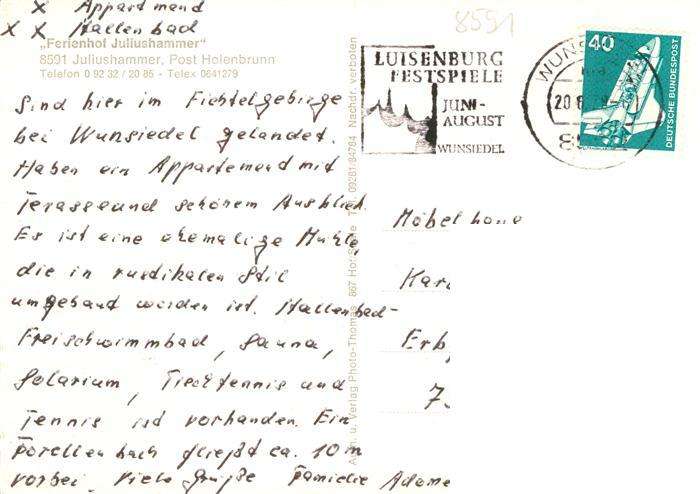 X Appartmend
X X Hallenbad
8591
„Ferienhof Juliushammer"
8591 Juliushammer, Post Holenbrunn
Telefon 0 92 32 / 20 85 - Telex 0641279
Sind hier im Fichtelgebirge
bei Wunsiedel gelandet.
Haben ein Appartemend mit
Terasse und schönem Ausblick
Es ist eine ehemalige Mühle,
die in rustikalen Stil
umgebaut worden ist. Hallenbad-
Freischwimmbad, Sauna,
Solarium, Tischtennis und
Tennis ist vorhanden. Ein
Forellenbach fließt ca. 10m
vorbei. Viele Grüße Familie Adame
Verlag Photo-Thomas 867 Hof/Saale 09281/84764 Nachdr. verboten
LUISENBURG
FESTSPIELE
JUNI-
AUGUST
WUNSIEDEL
WUNS
20.8
40
DEUTSCHE BUNDESPOST
Möbel
Kar
Erb
7